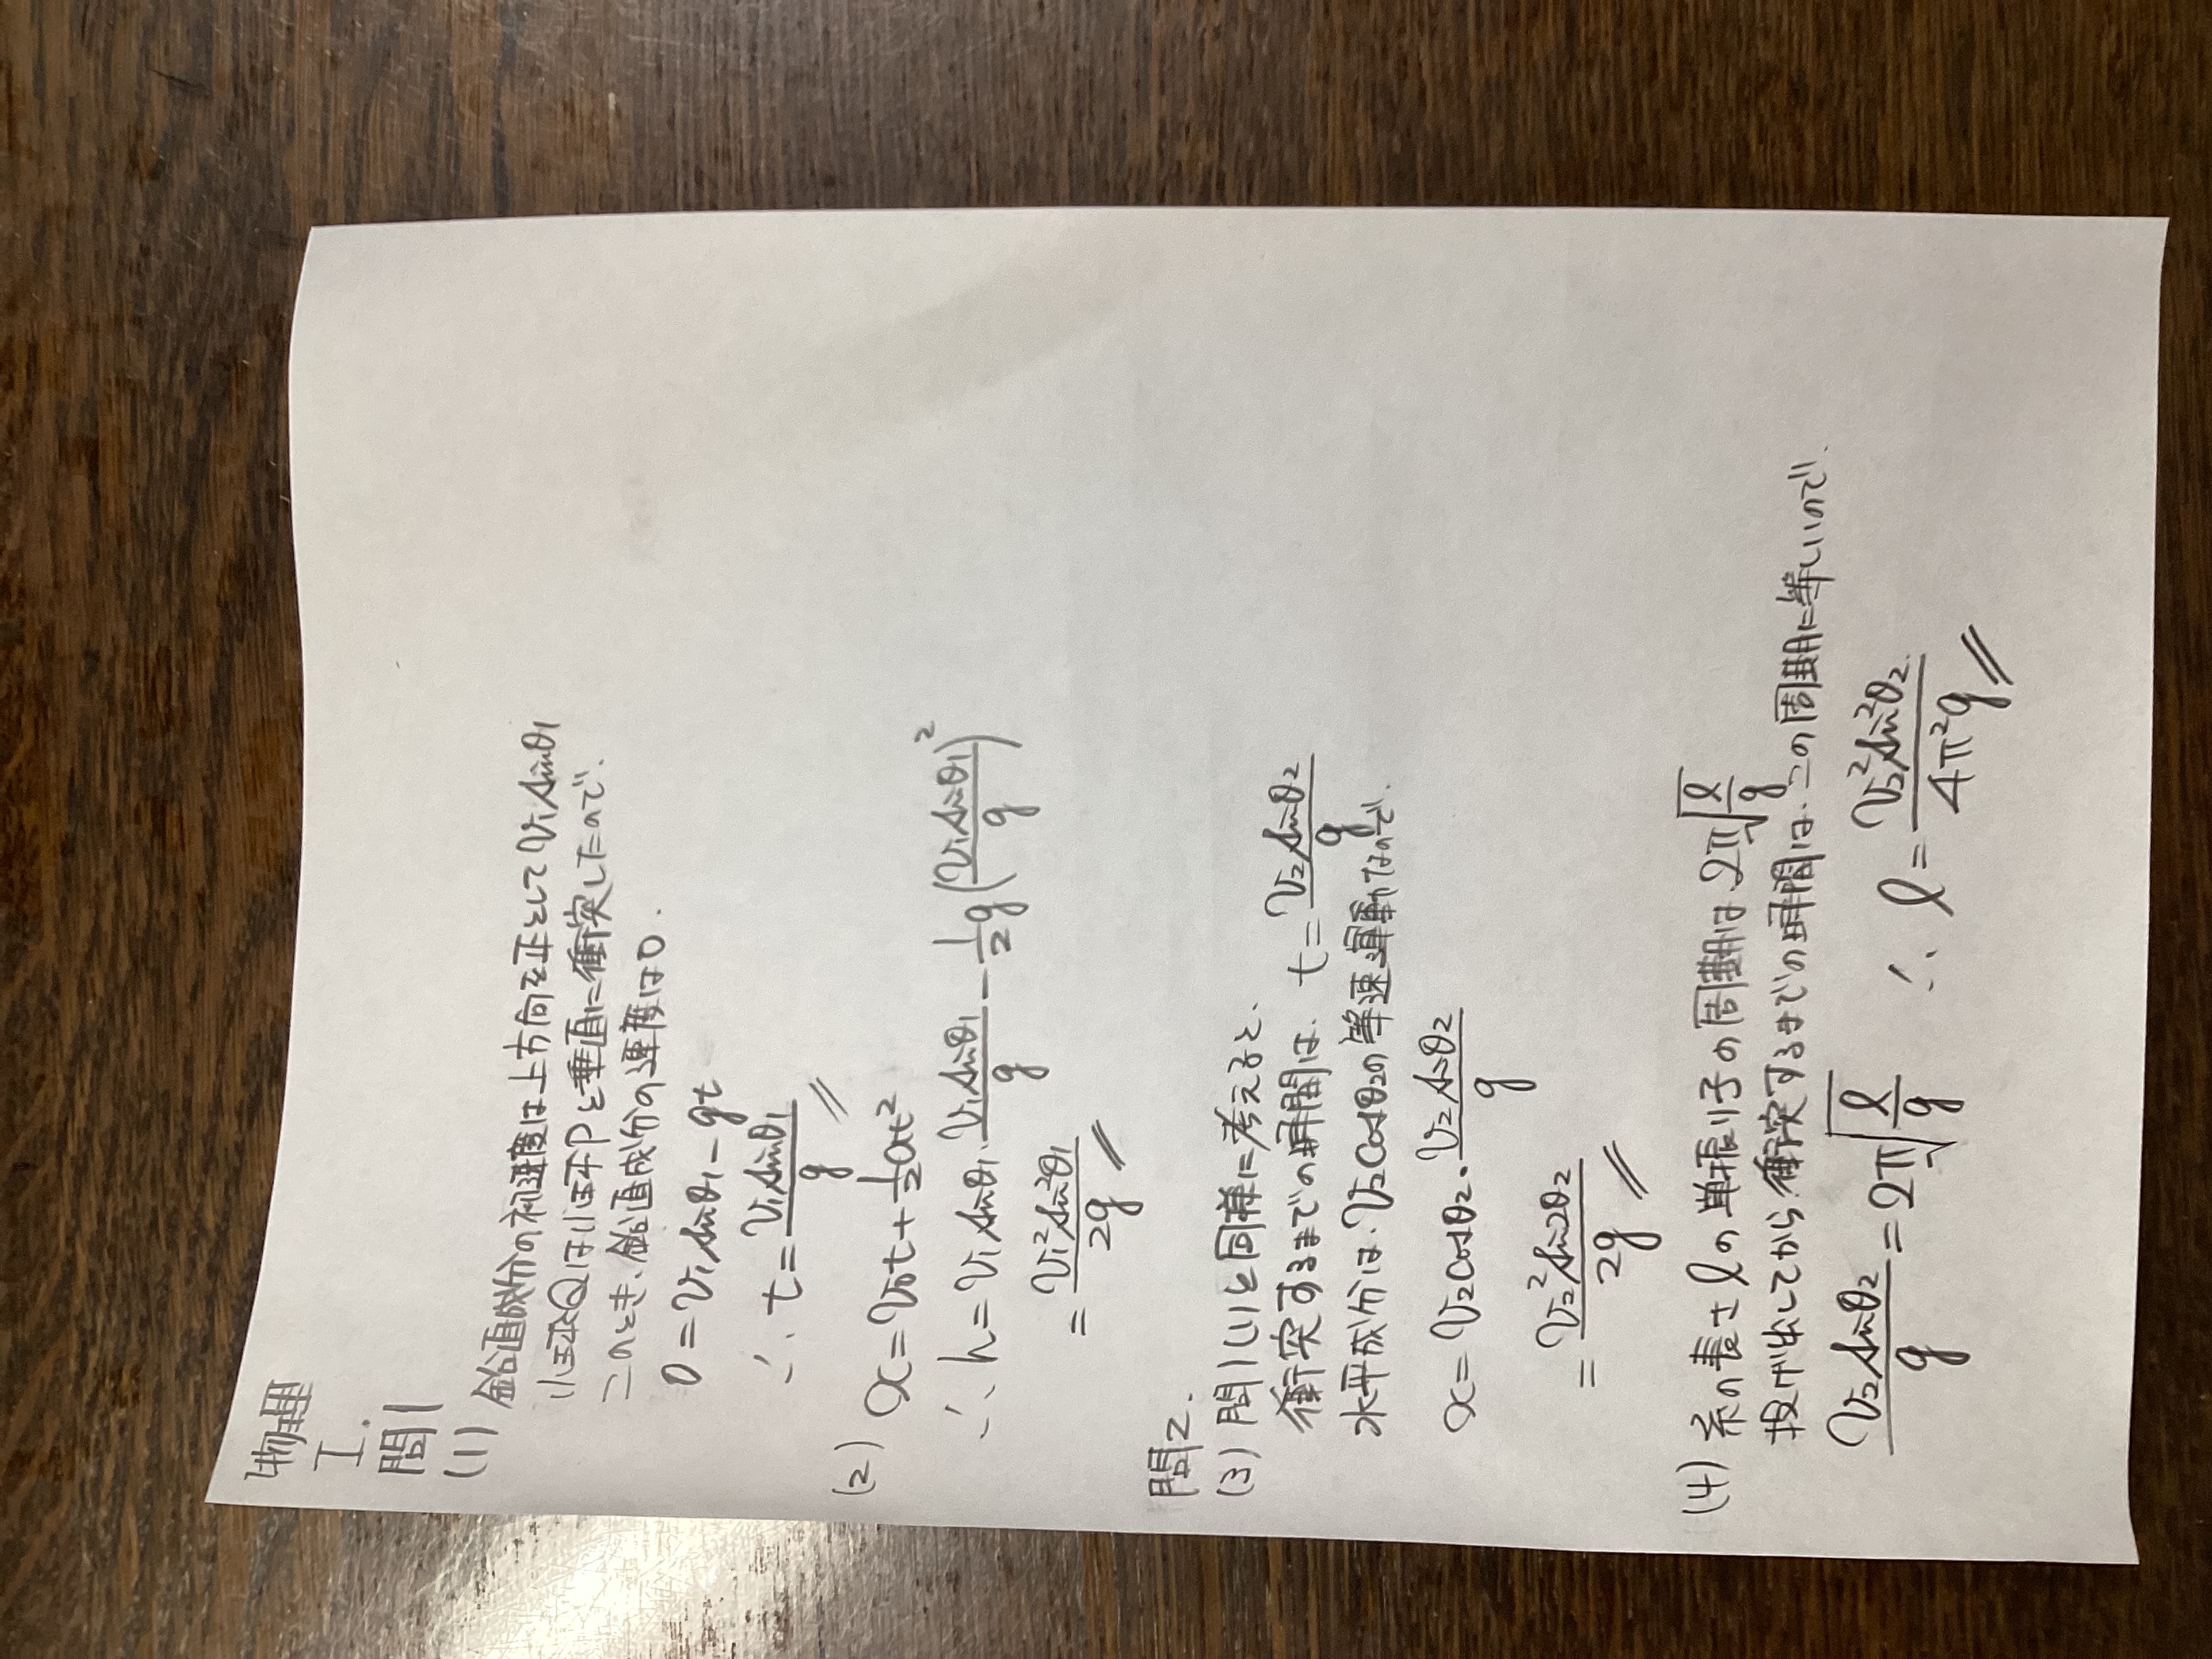 物理
I.
問1
(1) 鉛直成分の初速度は上方向を正として v₁sinθ₁
小球Qは小球Pと垂直に衝突したので、
このとき、鉛直成分の速度は0.
0 = v₁sinθ₁ - gt
∴ t = v₁sinθ₁/g
(2) x = v₀t + 1/2 at²
∴ h = v₁sinθ₁・v₁sinθ₁/g - 1/2 g(v₁sinθ₁/g)²
= v₁²sin²θ₁/2g
問2.
(3) 問1(1)と同様に考えると、
衝突するまでの時間は、t = v₂sinθ₂/g
水平成分は、v₂cosθ₂の等速運動なので、
x = v₂cosθ₂・v₂sinθ₂/g
= v₂²sin2θ₂/2g
(4) 糸の長さ l の単振り子の周期は 2π√(l/g)
投げ出してから衝突するまでの時間は、この周期に等しいので、
v₂sinθ₂/g = 2π√(l/g) ∴ l = v₂²sin²θ₂/4π²g